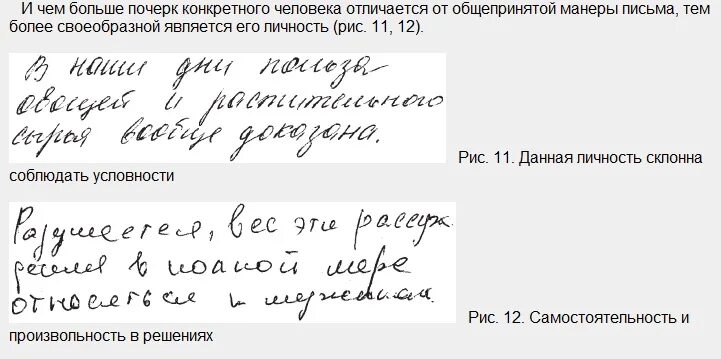 И чем больше почерк конкретного человека отличается от общепринятой манеры письма, тем
более своеобразной является его личность (рис. 11, 12).
В наши дни польза
овощей и растительного
сырья вообще доказана.
Рис. 11. Данная личность склонна
соблюдать условности
Разумеется, все эти рассуж
дения в полной мере
относяться к мужчинам.
Рис. 12. Самостоятельность и
произвольность в решениях